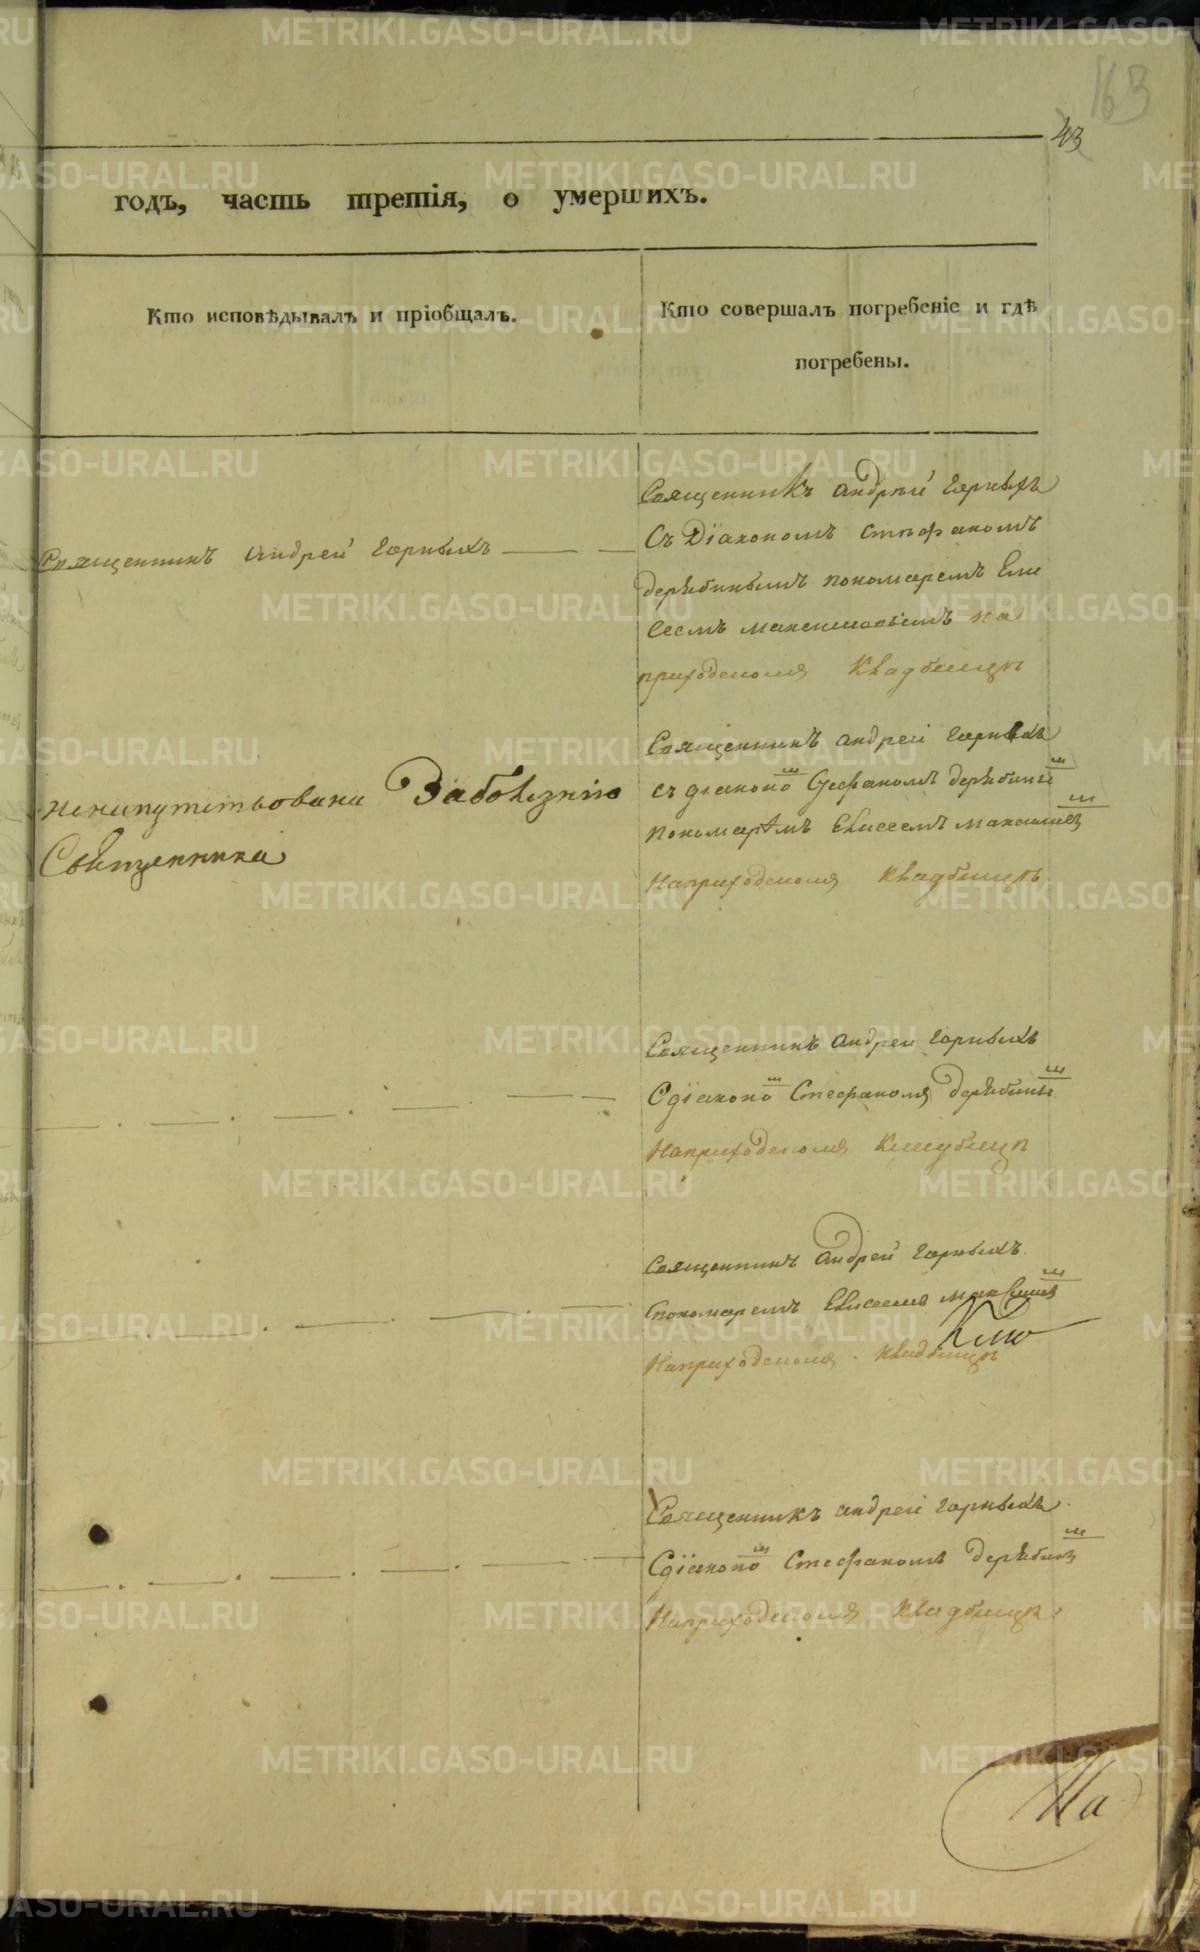 163
43
годъ, часть третія, о умершихъ.
Кто исповѣдывалъ и пріобщалъ.
Кто совершалъ погребеніе и гдѣ
погребены.
Священникъ Андрей Горныхъ
Священникъ Андрѣй Горныхъ
Съ Діакономъ Стефаномъ
дерябинымъ пономаремъ Ели
сеемъ максимовымъ на
приходскомъ Кладбищѣ
ненапутствована Заболезнію
Священника
Священникъ Андрей Горныхъ
съ діаконо Стефаномъ дерябины
пономарѣмъ Елисеемъ максимов
Наприходскомъ кладбищѣ
Священникъ Андрей Горныхъ
Сдіаконо Стефаномъ Дерябины
Наприходскомъ Кладбищѣ
Священникъ Андрей Горныхъ
Спономаремъ Елисеемъ максимов
Наприходскомъ кладбищѣ
Священникъ андрей горныхъ
Сдіаконо Стефаномъ дерябин
Наприходскомъ Кладбищѣ
На
METRIKI.GASO-URAL.RU